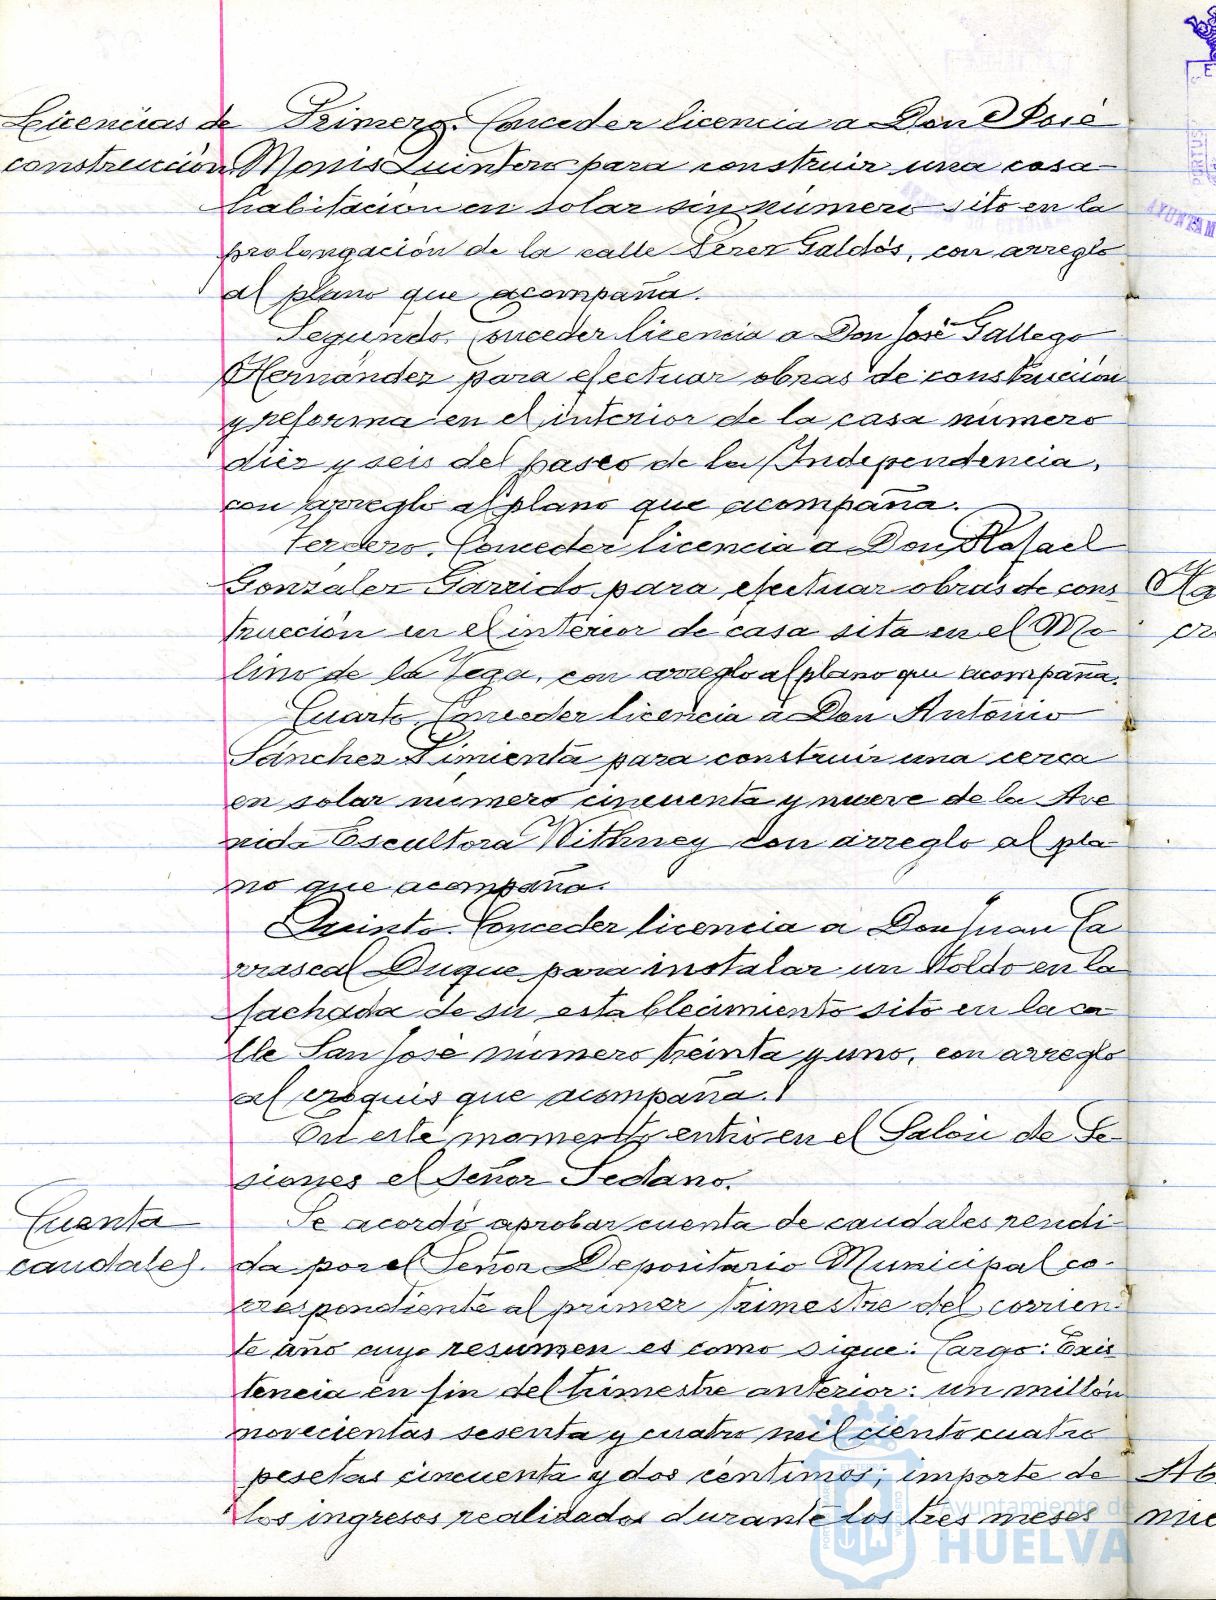 Licencias de
construcción
Primero. Conceder licencia a Don José
Monis Quintero para construir una casa
habitación en solar sin número sito en la
prolongación de la calle Perez Galdós, con arreglo
al plano que acompaña.
Segundo. Conceder licencia a Don José Gallego
Hernández para efectuar obras de construcción
y reforma en el interior de la casa número
diez y seis del paseo de la Independencia,
con arreglo al plano que acompaña.
Tercero. Conceder licencia a Don Rafael
González Garrido para efectuar obras de cons-
trucción en el interior de casa sita en el Mo-
lino de la Vega, con arreglo al plano que acompaña.
Cuarto. Conceder licencia a Don Antonio
Sánchez Pimienta para construir una cerca
en solar número cincuenta y nueve de la Ave
nida Escultora Withney con arreglo al pla-
no que acompaña.
Quinto. Conceder licencia a Don Juan Ca
rrascal Duque para instalar un toldo en la
fachada de su establecimiento sito en la ca-
lle San José número treinta y uno, con arreglo
al croquis que acompaña.
En este momento entró en el Salón de Se-
siones el Señor Sedano.
Cuenta
caudales.
Se acordó aprobar cuenta de caudales rendi-
da por el Señor Depositario Municipal co-
rrespondiente al primer trimestre del corrien-
te año cuyo resumen es como sigue: Cargo: Exis
tencia en fin del trimestre anterior: un millón
novecientas sesenta y cuatro mil ciento cuatro
pesetas cincuenta y dos céntimos; importe de
los ingresos realizados durante los tres meses
Ayuntamiento de
HUELVA